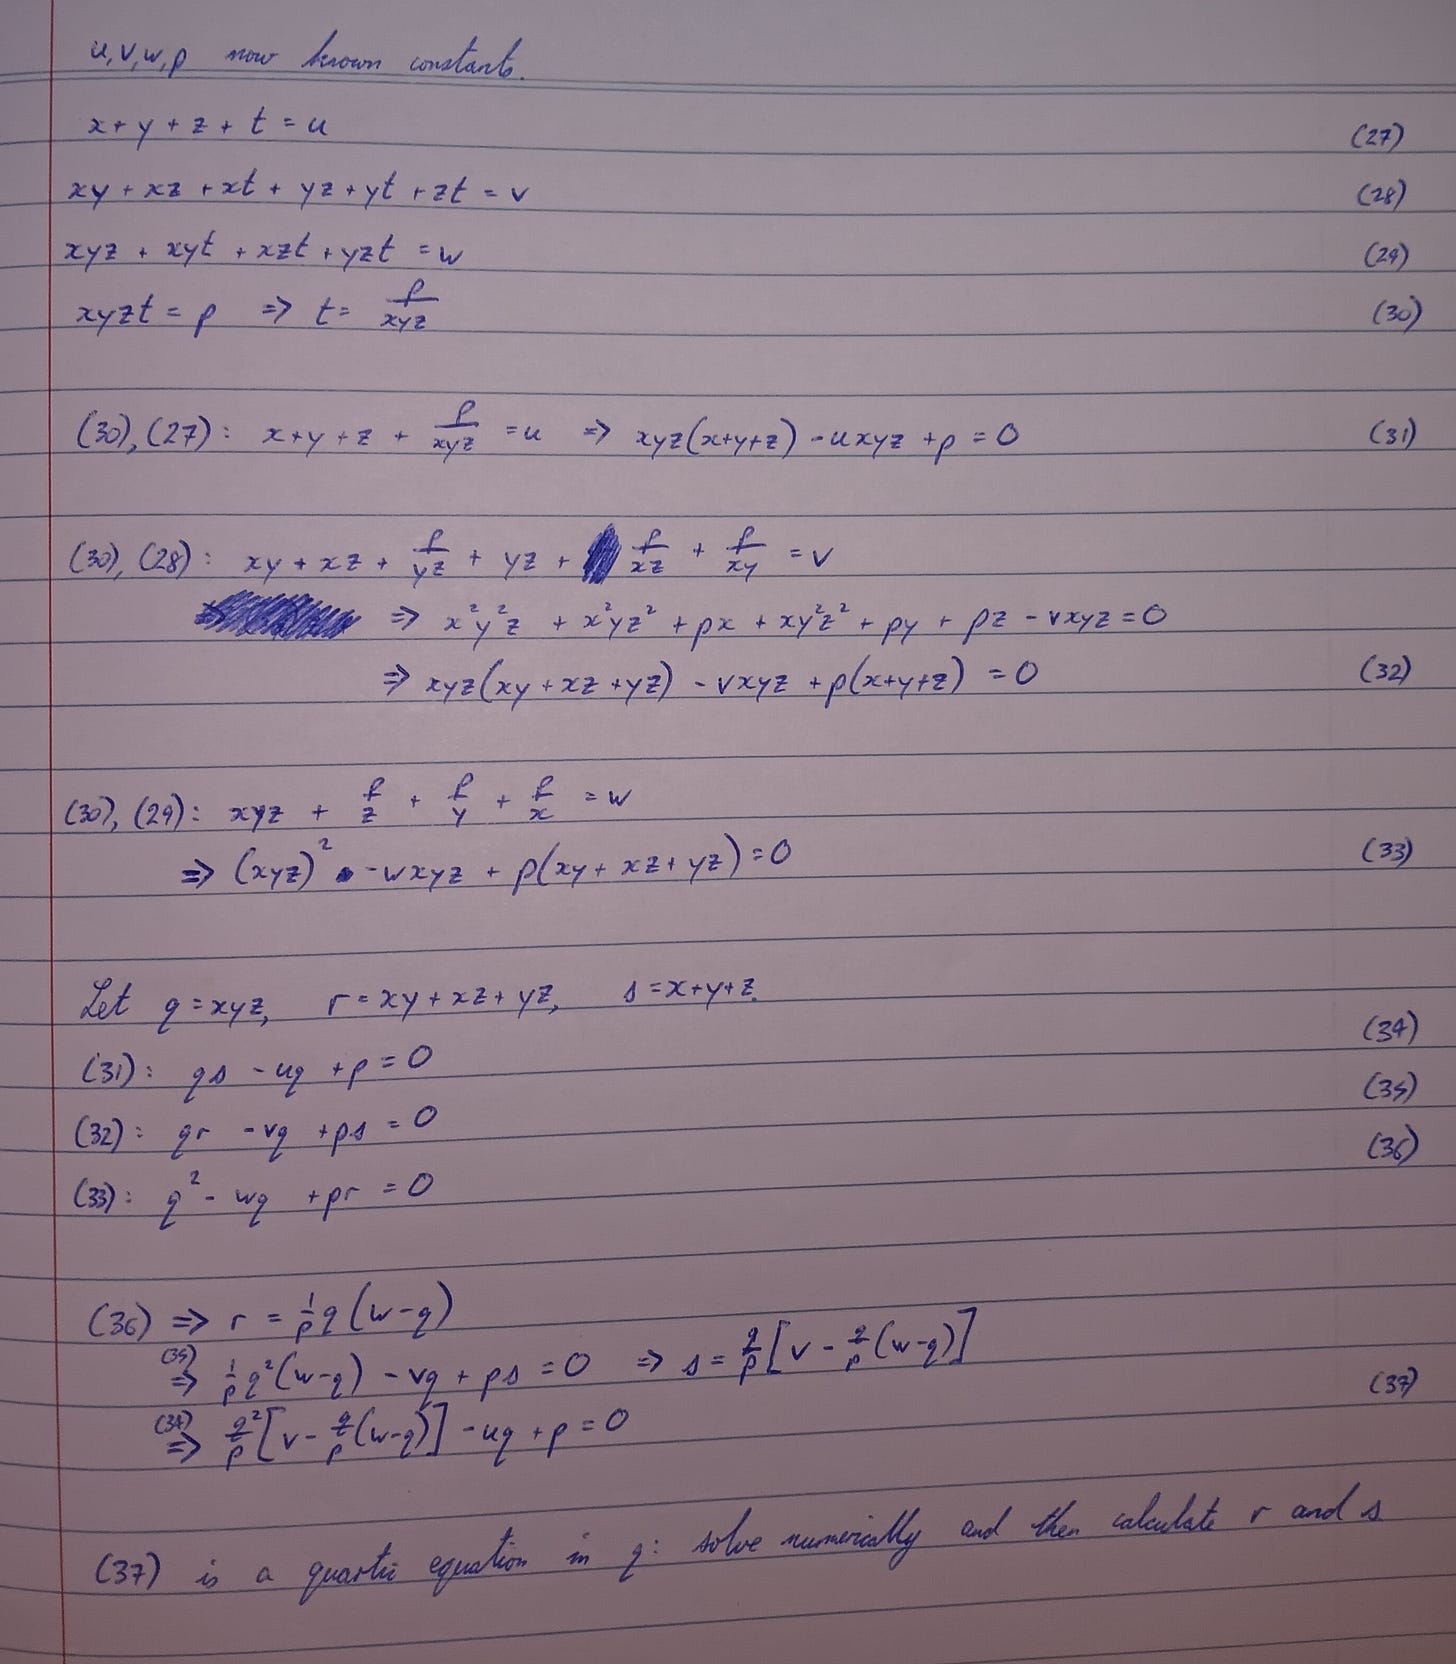 u, v, w, p now known constants.
x + y + z + t = u (27)
xy + xz + xt + yz + yt + zt = v (28)
xyz + xyt + xzt + yzt = w (29)
xyzt = p ⇒ t = p/xyz (30)
(30), (27): x + y + z + p/xyz = u ⇒ xyz(x+y+z) - uxyz + p = 0 (31)
(30), (28): xy + xz + p/yz + yz + p/xz + p/xy = v
⇒ x²y²z + x²yz² + px + xy²z² + py + pz - vxyz = 0
⇒ xyz(xy + xz + yz) - vxyz + p(x+y+z) = 0 (32)
(30), (29): xyz + p/z + p/y + p/x = w
⇒ (xyz)² - wxyz + p(xy + xz + yz) = 0 (33)
Let q = xyz, r = xy + xz + yz, s = x+y+z.
(31): qs - uq + p = 0 (34)
(32): qr - vq + ps = 0 (35)
(33): q² - wq + pr = 0 (36)
(36) ⇒ r = 1/p q(w-q)
(35) ⇒ 1/p q²(w-q) - vq + ps = 0 ⇒ s = q/p [v - q/p (w-q)]
(34) ⇒ q²/p [v - q/p (w-q)] - uq + p = 0 (37)
(37) is a quartic equation in q: solve numerically and then calculate r and s